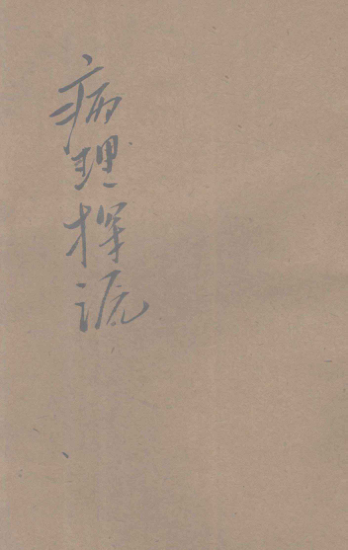 病理探源